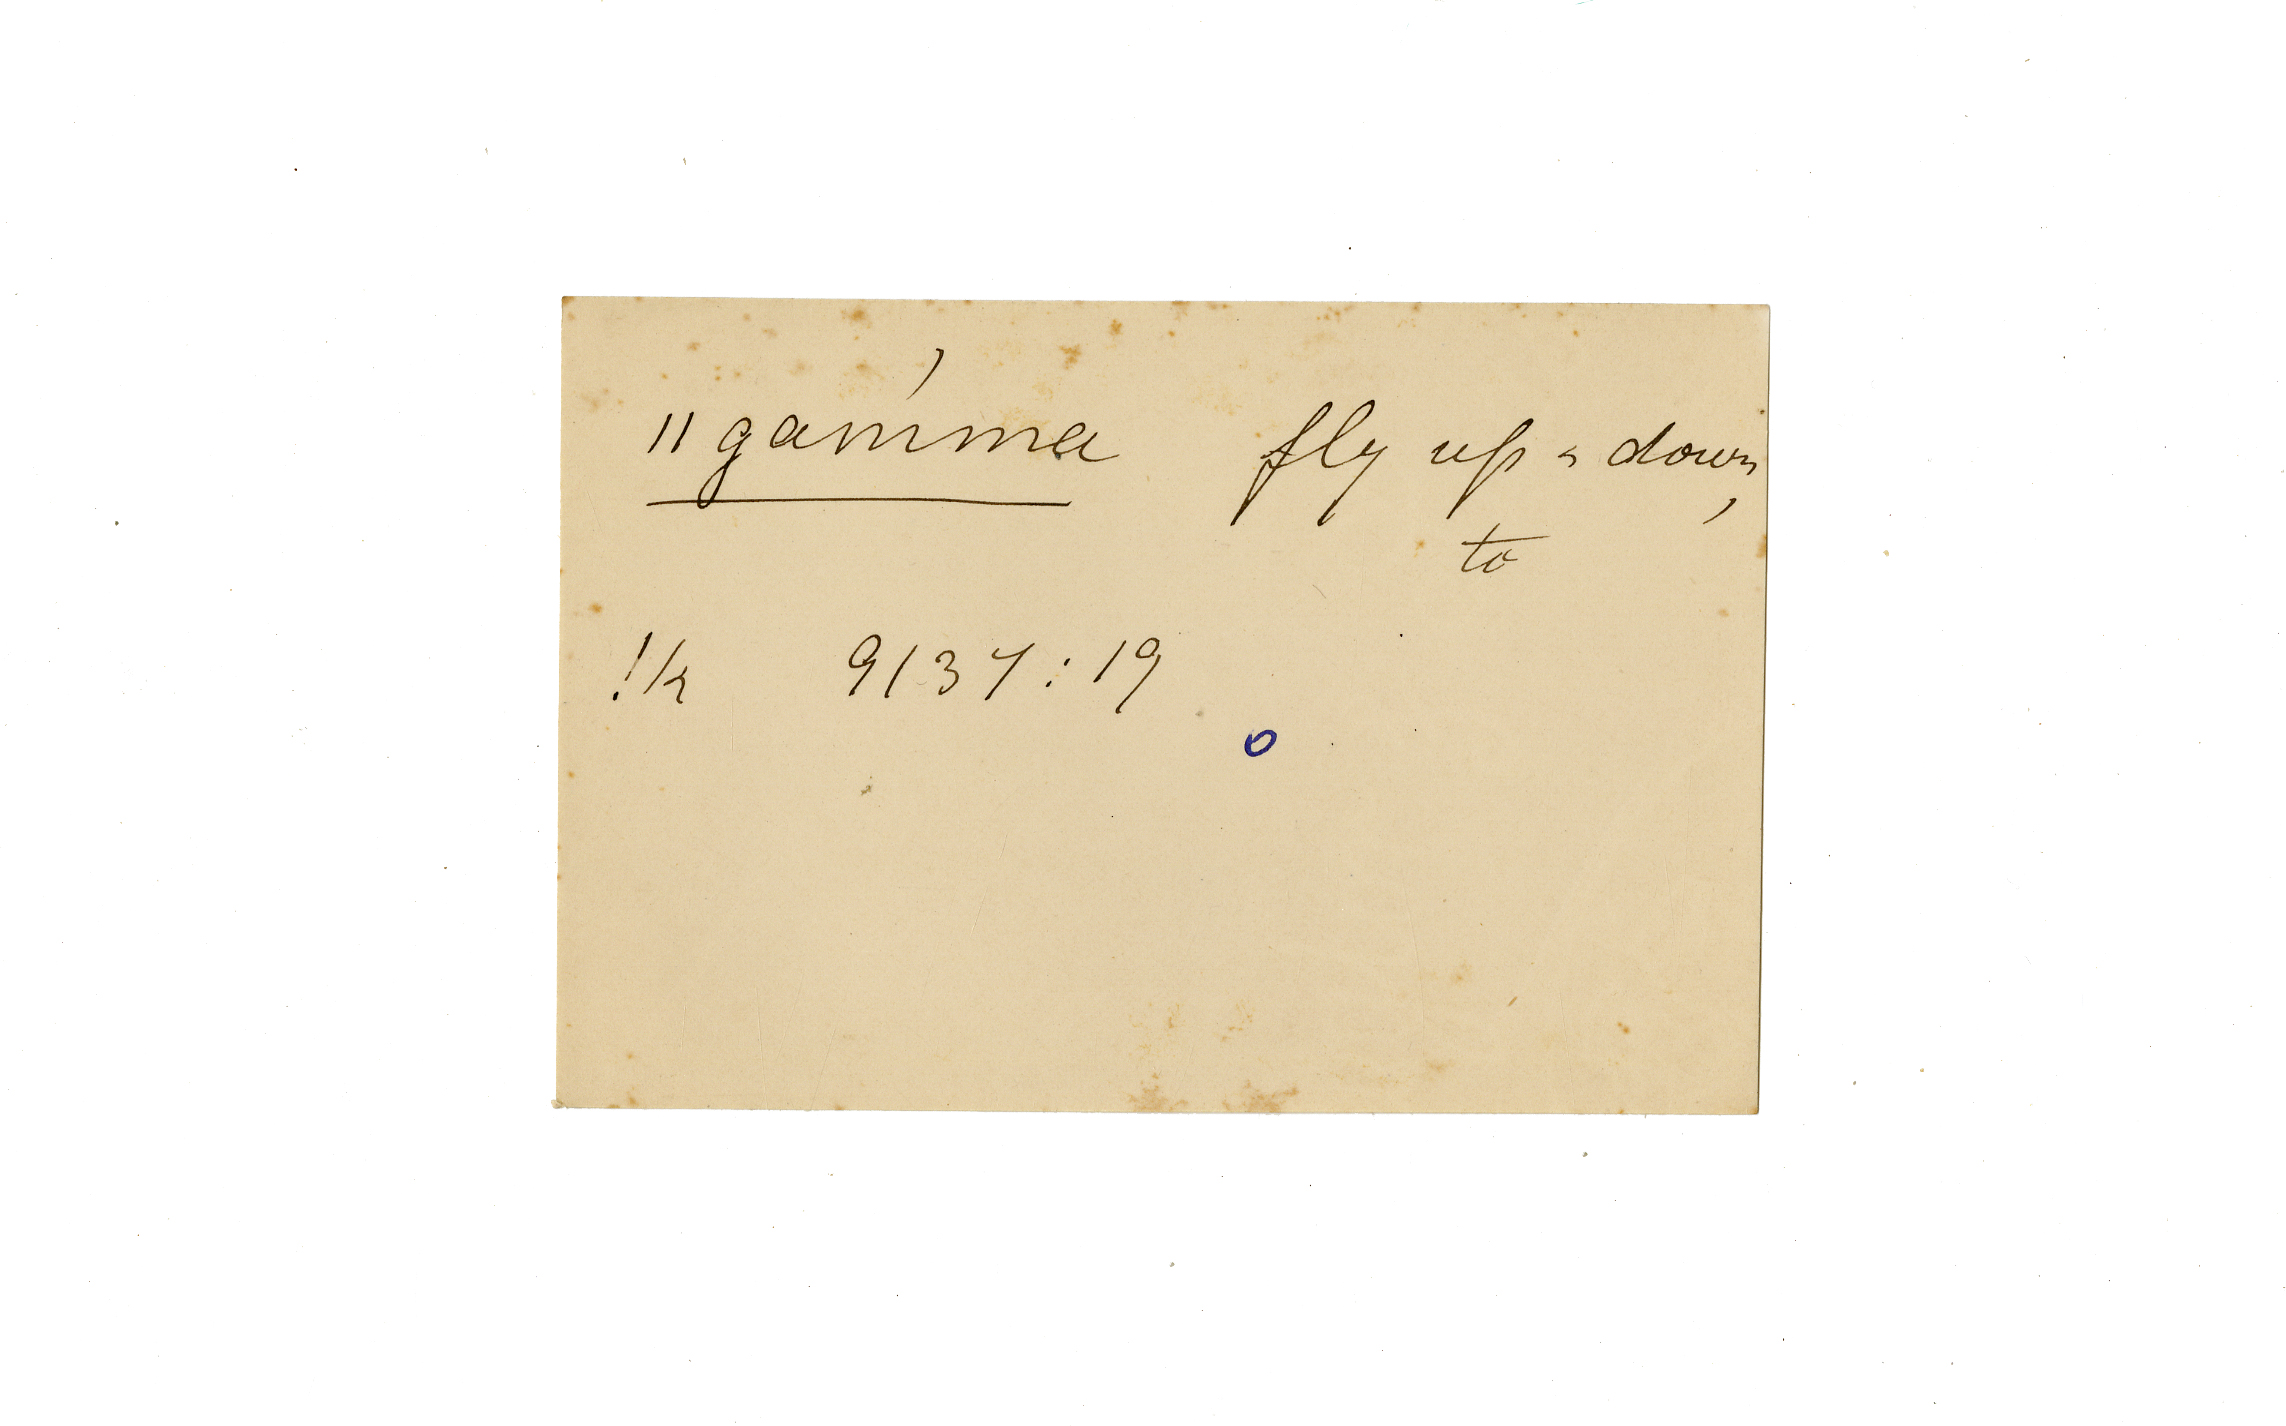 ǁgam´ma fly up & down,
to
!k 9137:19
o